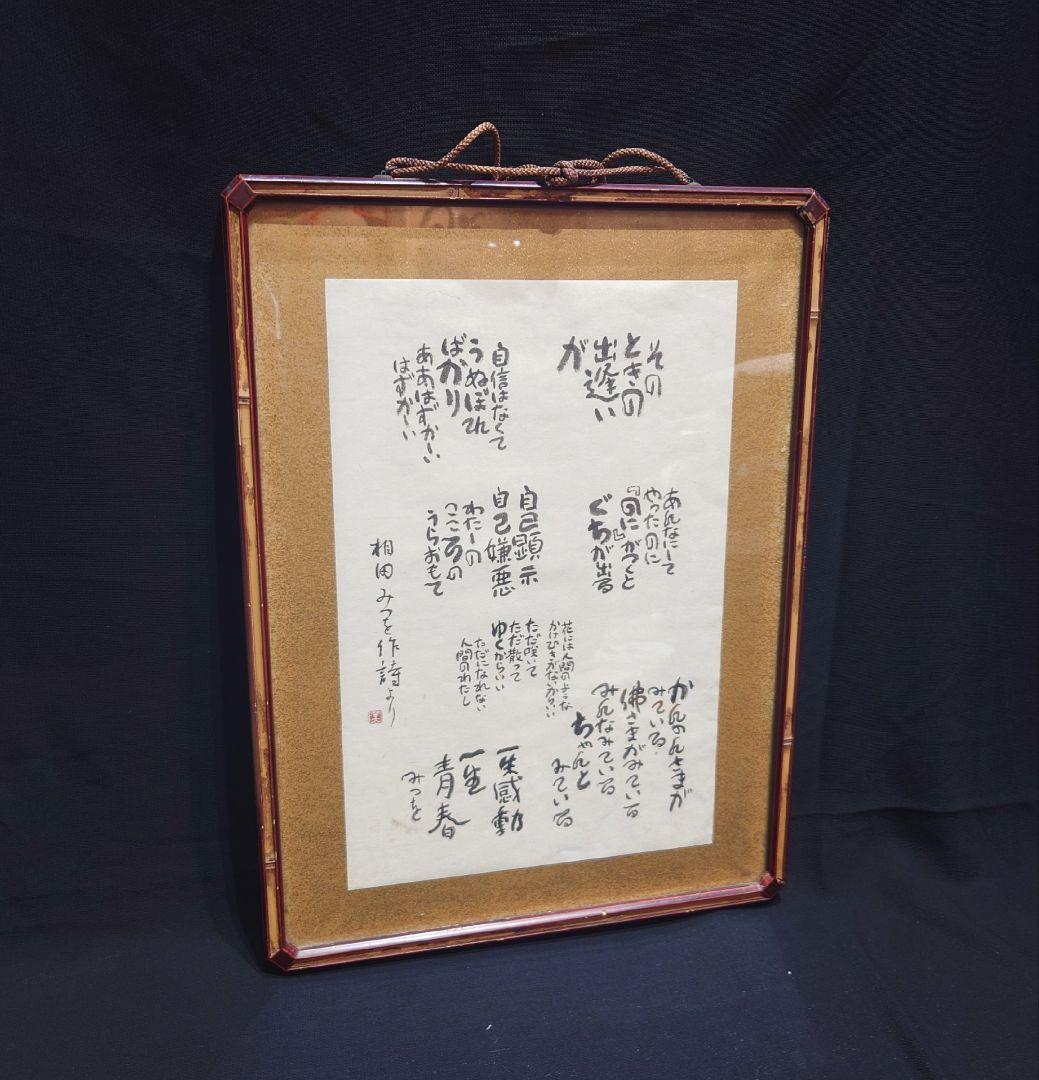 その
ときの
出逢い
が
自信はなくて
うぬぼれ
ばかり
ああはずかしい
はずかしい
あんなにして
やったのに
『のに』がつくと
ぐちが出る
自己顕示
自己嫌悪
わたしの
こころの
うらおもて
花には人間のような
かけひきがないからいい
ただ咲いて
ただ散って
ゆくからいい
ただになれない
人間のわたし
かんのんさまが
みている
佛さまがみている
みんなみている
ちゃんと
みている
一生感動
一生
青春
みつを
相田みつを作詩より